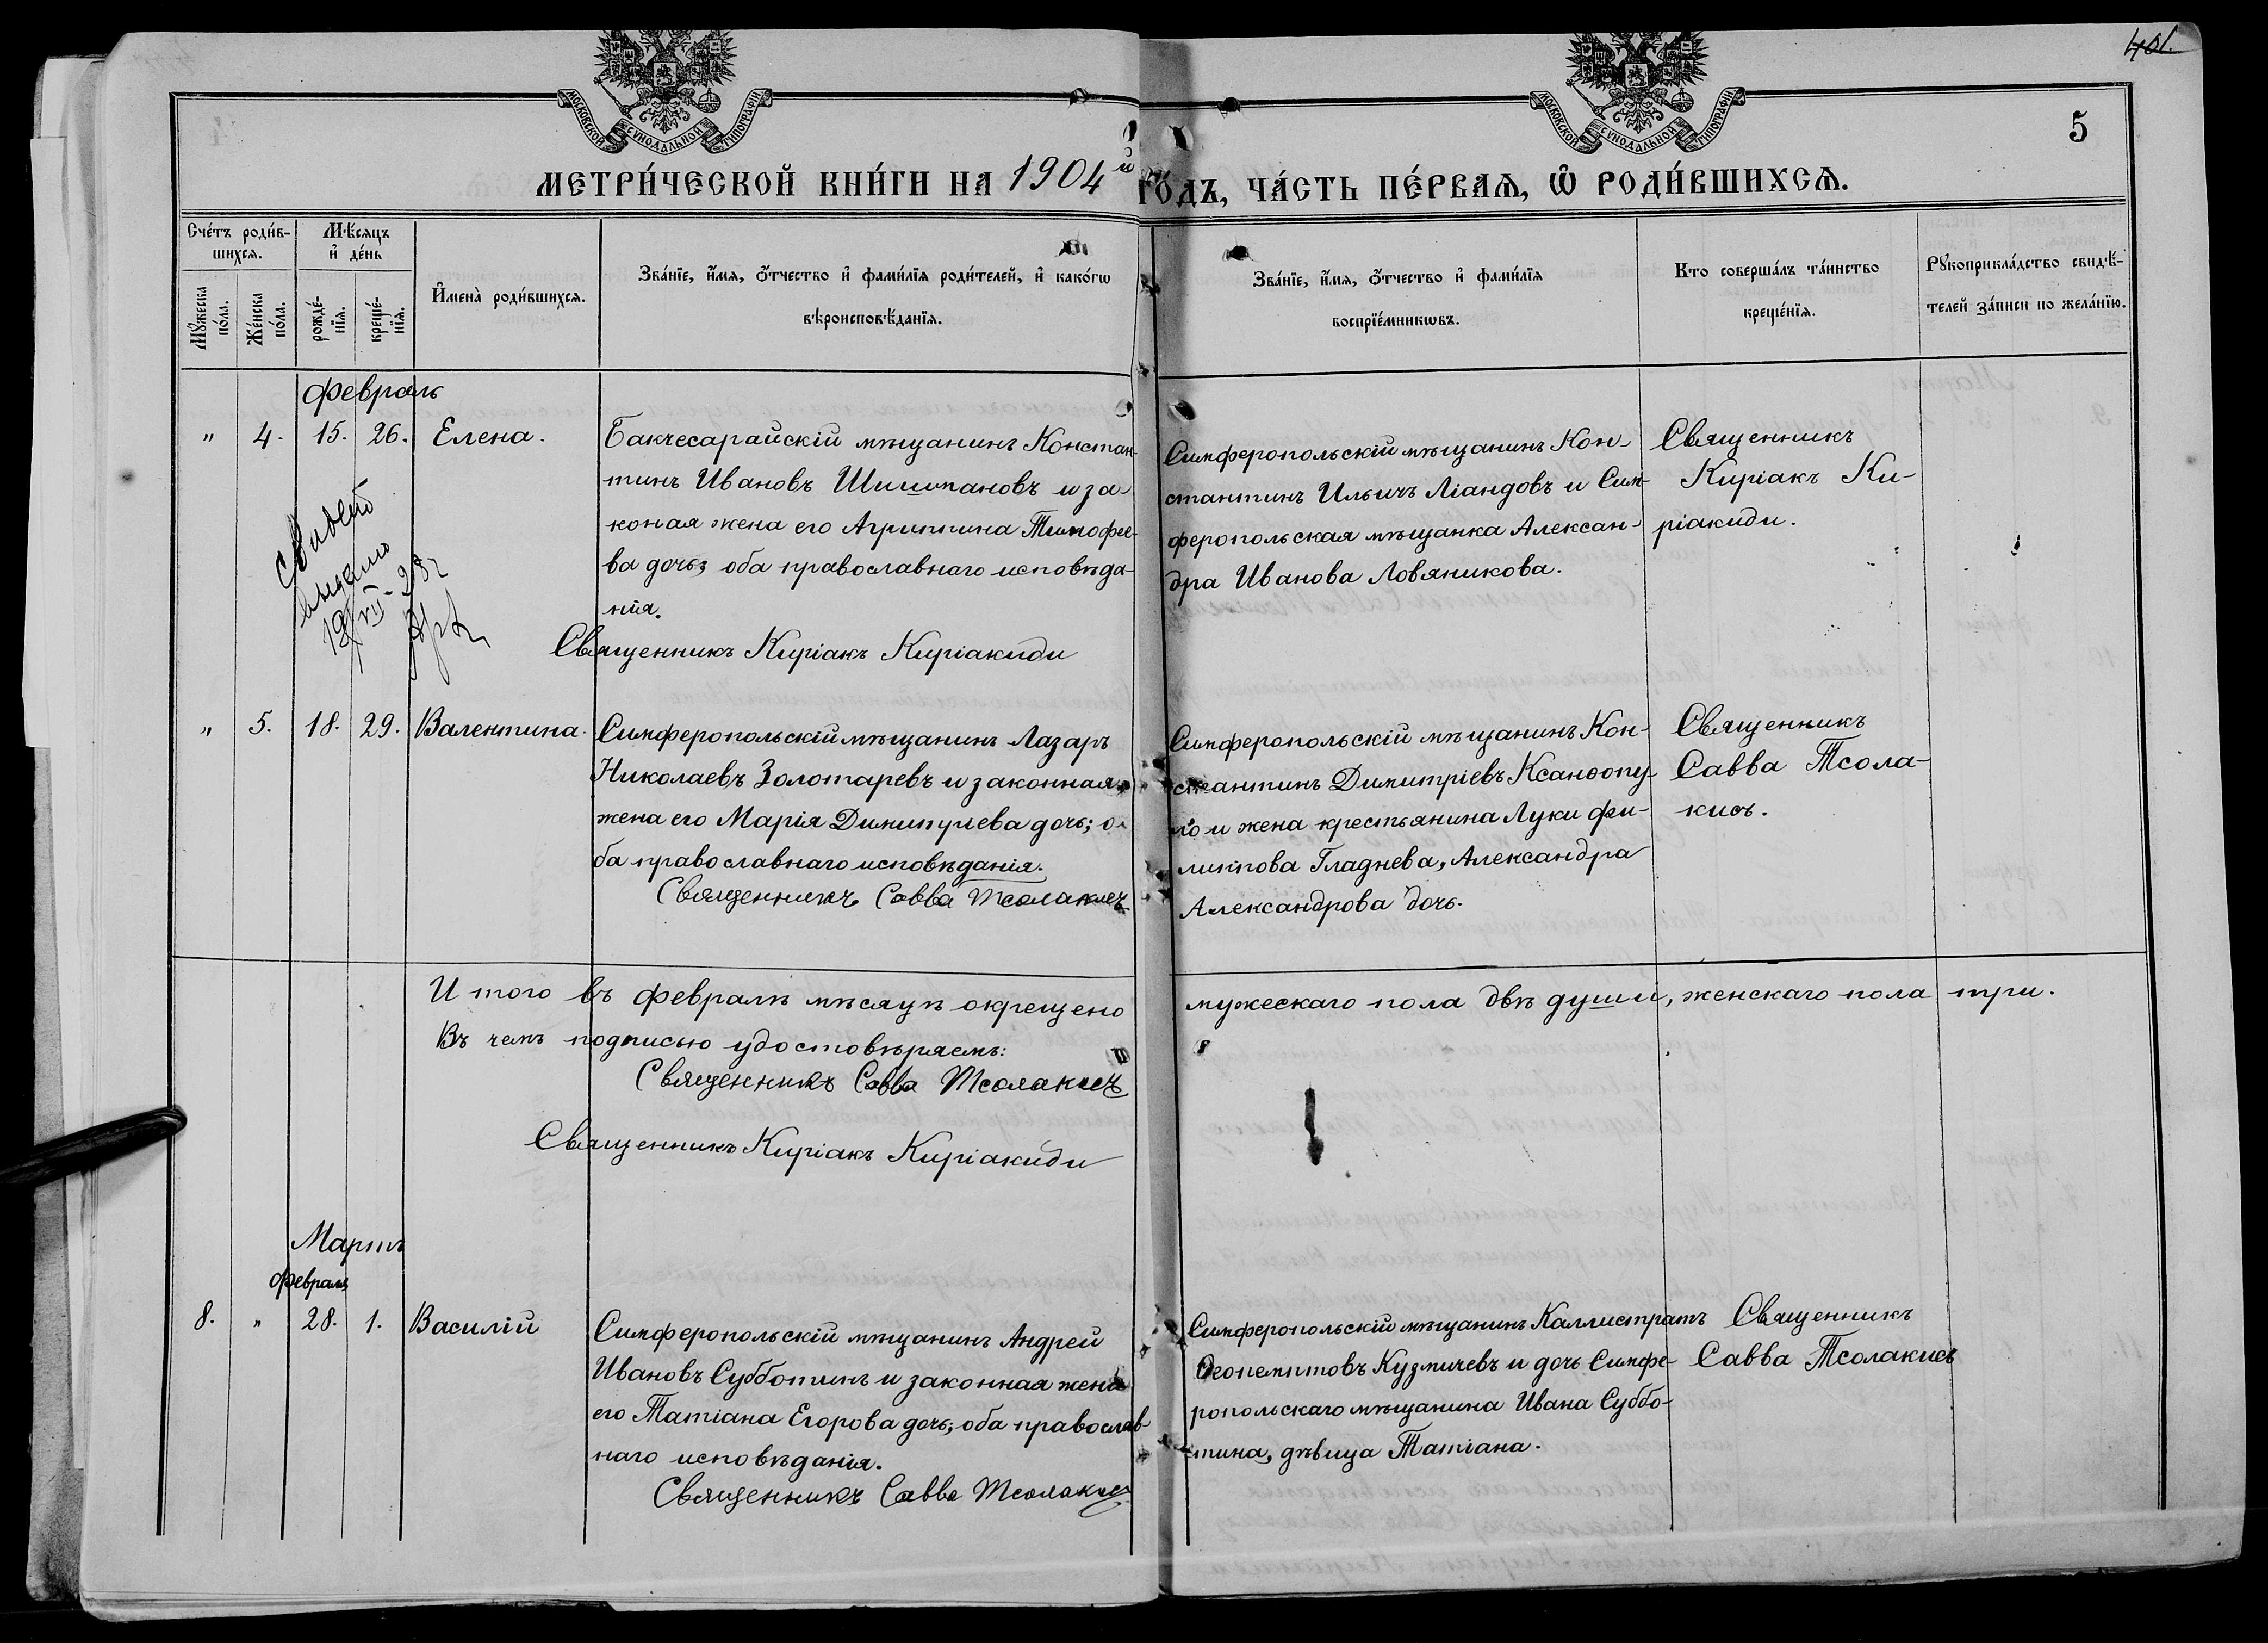 401.
МОСКОВСКОЙ СѴНОДАЛЬНОЙ ТИПОГРАФІИ
МОСКОВСКОЙ СѴНОДАЛЬНОЙ ТИПОГРАФІИ
5
МЕТРИ́ЧЕСКОЙ КНИ́ГИ НА 1904й ГО́ДЪ, ЧА́СТЬ ПЕ́РВАѦ, Ѡ҆ РОДИ́ВШИХСѦ.
Сче́тъ роди́в-
шихсѧ.
Мꙋ́жеска
по́ла.
Же́нска
по́ла.
Мѣ́сѧцъ
и҆ де́нь
рожде́-
нїѧ.
креще́-
нїѧ.
И҆мена̀ роди́вшихсѧ.
Зва́нїе, и҆́мѧ, ѻ҆́тчество и҆ фами́лїѧ роди́телей, и҆ како́гѡ
вѣроисповѣ́данїѧ.
Зва́нїе, и҆́мѧ, ѻ҆́тчество и҆ фами́лїѧ
воспрїе́мникѡвъ.
Кто соверша́лъ та́инство
креще́нїѧ.
Рꙋкоприкла́дство свидѣ́-
телей за́писи по жела́нїю.
Февраль
" 4. 15. 26. Елена.
Бакчесарайскій мѣщанинъ Констан-
тинъ Ивановъ Шишмановъ и за
коная жена его Агриппина Тимофее-
ва дочь; оба православнаго исповѣда-
нія.
Священникъ Киріакъ Киріакиди
Симферопольскій мѣщанинъ Кон-
стантинъ Ильичъ Ліандовъ и Сим-
феропольская мѣщанка Алексан-
дра Иванова Ловяникова.
Священникъ
Киріакъ Ки-
ріакиди.
выдано
" 5. 18. 29. Валентина.
Симферопольскій мѣщанинъ Лазарь
Николаевъ Золотаревъ и законная
жена его Марія Димитріева дочь; о-
ба православнаго исповѣданія.
Священникъ Савва Тсолакисъ
Симферопольскій мѣщанинъ Кон-
стантинъ Димитріевъ Ксанѳопу-
ло и жена крестьянина Луки Фи-
липпова Гладнева, Александра
Александрова дочь.
Священникъ
Савва Тсола-
кисъ.
Итого въ Февралѣ мѣсяцѣ окрещено мужескаго пола двѣ души, женскаго пола три.
Въ чемъ подписью удостовѣряемъ:
Священникъ Савва Тсолакисъ
Священникъ Киріакъ Киріакиди
Мартъ
Февраля
8. " 28. 1. Василій
Симферопольскій мѣщанинъ Андрей
Ивановъ Субботинъ и законная жена
его Татіана Егорова дочь; оба православ-
наго исповѣданія.
Священникъ Савва Тсолакисъ
Симферопольскій мѣщанинъ Каллистратъ
Ѳеопемптовъ Кузмичевъ и дочь Симфе-
ропольскаго мѣщанина Ивана Суббо-
тина, дѣвица Татіана.
Священникъ
Савва Тсолакисъ